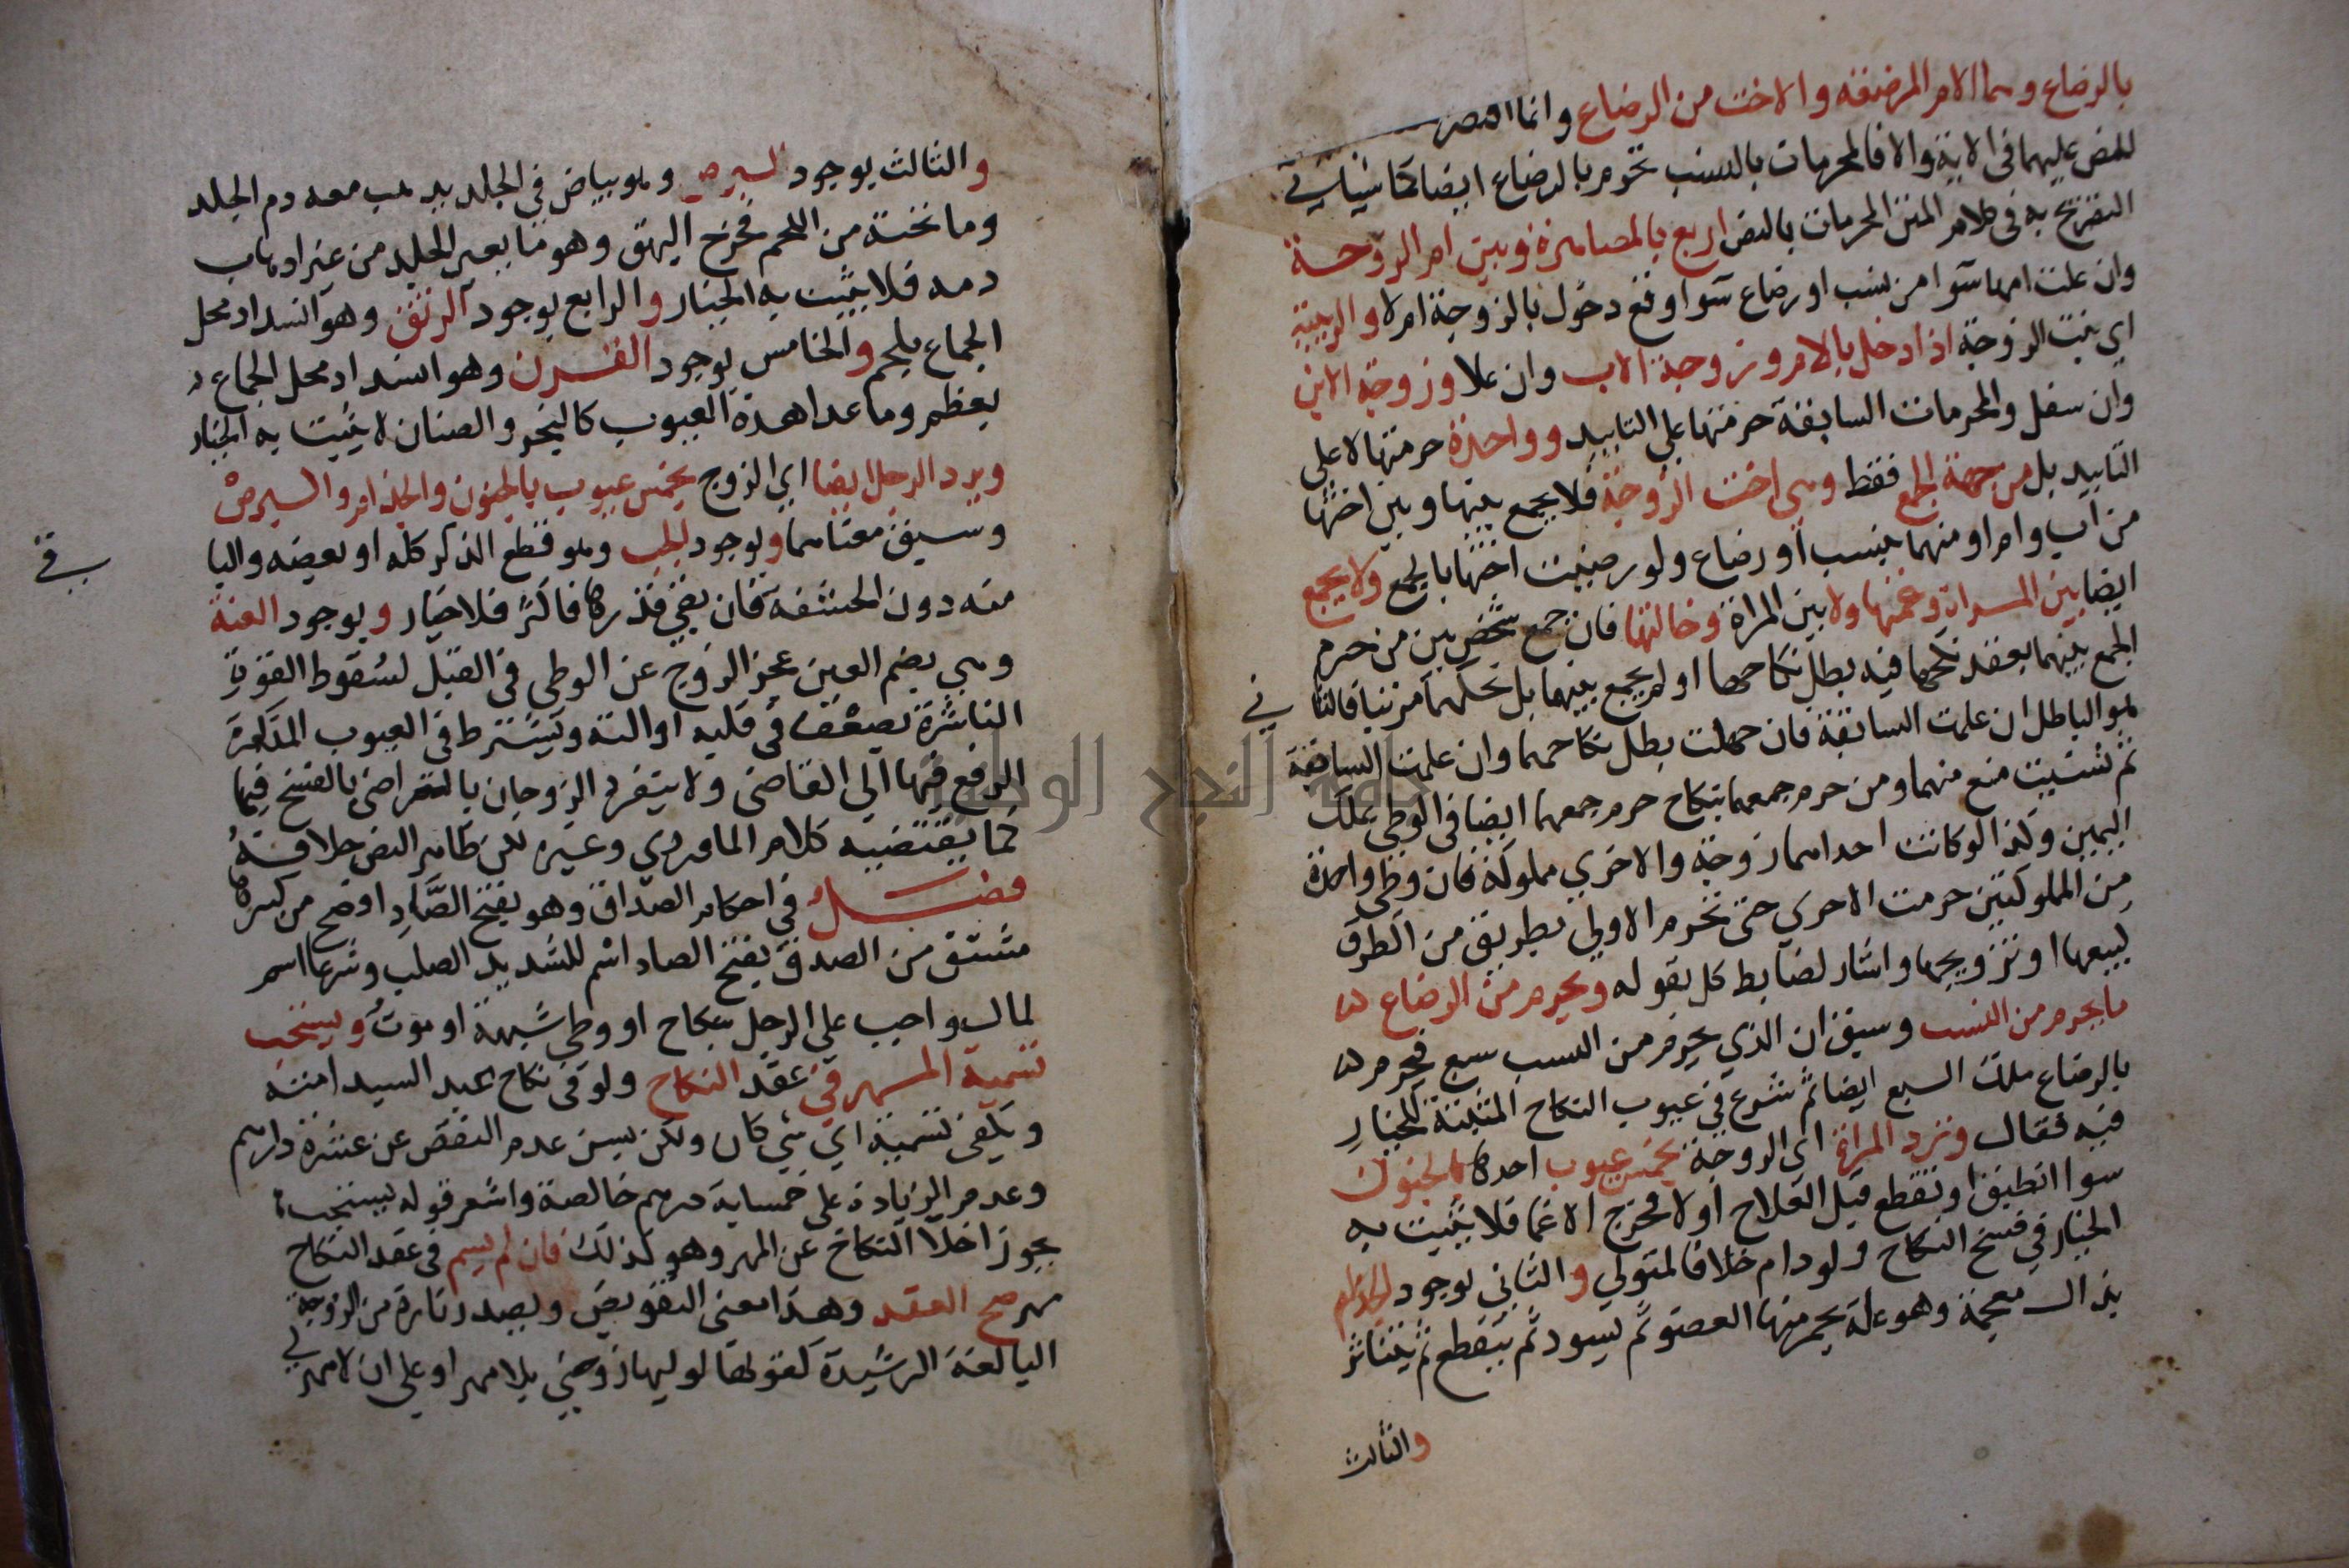 بالرضاع وهما الام المرضعة والاخت من الرضاع وانما اقتصر
للنص عليهما في الاية والا فالمحرمات بالنسب تحرم بالرضاع ايضا كما سياتي
التصريح به في كلام المتن المحرمات بالنص اربع بالمصاهرة وهي ام الزوجة
وان علت امها سوا من نسب او رضاع سوا وقع دخول بالزوجة ام لا والربيبة
اي بنت الزوجة اذا دخل بالام وزوجة الاب وان علا وزوجة الابن
وان سفل والمحرمات السابقة حرمتها على التابيد وواحدة حرمتها لا على
التابيد بل من جهة الجمع فقط وهي اخت الزوجة فلا يجمع بينها وبين اختها
من اب وام او منهما بنسب او رضاع ولو رضيت اختها بالجمع ولا يجمع
ايضا بين المراة وعمتها ولا بين المراة وخالتها فان جمع شخص بين من حرم
الجمع بينهما بعقد نكحهما فيه بطل نكاحهما او لم يجمع بينهما بل نكحهما مرتبا فالثاني
هو الباطل ان علمت السابقة فان جهلت بطل نكاحهما وان علمت السابقة
ثم نسيت منع منهما ومن حرم جمعهما بنكاح حرم جمعهما ايضا في الوطي بملك
اليمين وكذا لو كانت احداهما زوجة والاخري مملوكة فان وطي واحدة
من المملوكتين حرمت الاخري حتى تحرم الاولي بطريق من الطرق
كبيعها او تزويجها واشار لضابط كل بقوله ويحرم من الرضاع
ما يحرم من النسب وسبق ان الذي يحرم من النسب سبع فيحرم
بالرضاع تلك السبع ايضا ثم شرع في عيوب النكاح المثبتة للخيار
فيه فقال وترد المراة اي الزوجة بخمس عيوب احدها بالجنون
سوا انطبق او تقطع قبل العلاج او لا فخرج الاغما فلا يثبت به
الخيار في فسخ النكاح ولو دام خلافا لمتولي والثاني بوجود الجذام
بذال معجمة وهو علة يحمر منها العضو ثم يسود ثم يتقطع ثم يتناثر
والثالث
والثالث بوجود البرص وهو بياض في الجلد يذهب معه دم الجلد
وما تحته من اللحم فخرج البهق وهو ما يغير الجلد من غير اذهاب
دمه فلا يثبت به الخيار والرابع بوجود الرتق وهو انسداد محل
الجماع بلحم والخامس بوجود القرن وهو انسداد محل الجماع
بعظم وما عدا هذه العيوب كالبخر والصنان لا يثبت به الخيار
ويرد الرجل ايضا اي الزوج بخمس عيوب بالجنون والجذام والبرص
وسبق معناهما وبوجود الجب وهو قطع الذكر كله او بعضه والباقي
منه دون الحشفة فان بقي قدرها فاكثر فلا خيار وبوجود العنة
وهي بضم العين عجز الزوج عن الوطي في القبل لسقوط القوة
الناشرة لضعف في قلبه او الته ويشترط في العيوب المذكورة
الرفع فيها الي القاضي ولا ينفرد الزوجان بالتراضي بالفسخ فيها
كما يقتضيه كلام الماوردي وغيره لكن ظاهر النص خلافه
فصل في احكام الصداق وهو بفتح الصاد اوضح من كسرها
مشتق من الصدق بفتح الصاد اسم للشديد الصلب وشرعا اسم
لمال واجب على الرجل بنكاح او وطي شبهة او موت ويستحب
تسمية المهر في عقد النكاح ولو في نكاح عبد السيد امته
ويكفي تسمية اي شي كان ولكن يسن عدم النقص عن عشرة دراهم
وعدم الزيادة على خمسماية درهم خالصة واشعر قوله يستحب
بجواز اخلا النكاح عن المهر وهو كذلك فان لم يسم في عقد النكاح
مهر صح العقد وهذا معنى التفويض ويصدر تارة من الزوجة
البالغة الرشيدة كقولها لوليها زوجني بلا مهر او على ان لا مهر لي